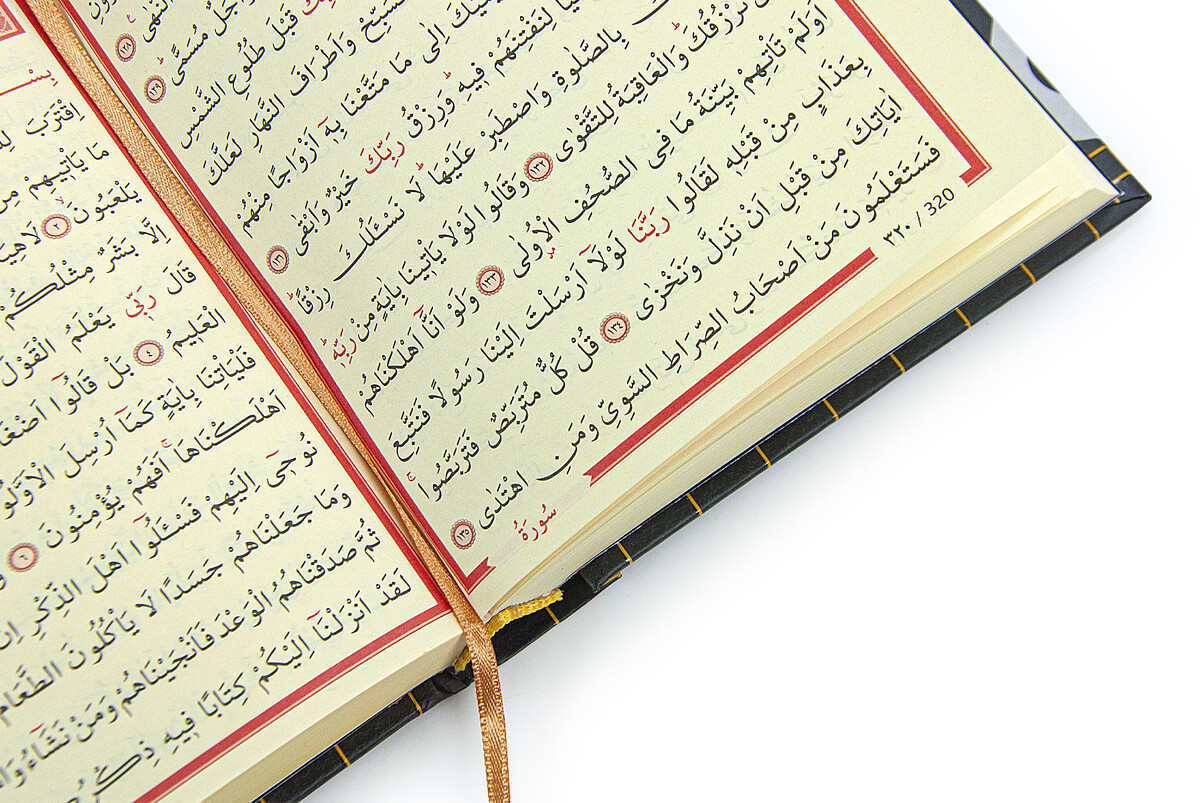 النُّهٰى ١٢٨
وَاَجَلٌ مُسَمًّى ١٢٩
قَبْلَ طُلُوعِ الشَّمْسِ
فَسَبِّحْ وَاَطْرَافَ النَّهَارِ لَعَلَّكَ
اِلٰى مَا مَتَّعْنَا بِهٖٓ اَزْوَاجًا مِنْهُمْ
لِنَفْتِنَهُمْ فِيهِۜ وَرِزْقُ رَبِّكَ خَيْرٌ وَاَبْقٰى ١٣١
بِالصَّلٰوةِ وَاصْطَبِرْ عَلَيْهَاۜ لَا نَسْـَٔلُكَ رِزْقًاۜ
نَرْزُقُكَۜ وَالْعَاقِبَةُ لِلتَّقْوٰى ١٣٢ وَقَالُوا لَوْلَا يَأْتِينَا بِاٰيَةٍ مِنْ رَبِّهٖۜ
اَوَلَمْ تَأْتِهِمْ بَيِّنَةُ مَا فِي الصُّحُفِ الْاُولٰى ١٣٣ وَلَوْ اَنَّٓا اَهْلَكْنَاهُمْ
بِعَذَابٍ مِنْ قَبْلِهٖ لَقَالُوا رَبَّنَا لَوْلَٓا اَرْسَلْتَ اِلَيْنَا رَسُولًا فَنَتَّبِعَ
اٰيَاتِكَ مِنْ قَبْلِ اَنْ نَذِلَّ وَنَخْزٰى ١٣٤ قُلْ كُلٌّ مُتَرَبِّصٌ فَتَرَبَّصُواۚ
فَسَتَعْلَمُونَ مَنْ اَصْحَابُ الصِّرَاطِ السَّوِيِّ وَمَنِ اهْتَدٰى ١٣٥
٣٢٠ / 320
سُورَةُ
بِسْــ
اِقْتَرَبَ
مَا يَأْتِيهِمْ مِنْ
يَلْعَبُونَ ٢ لَاهِيَةً
اِلَّا بَشَرٌ مِثْلُكُمْۚ
قَالَ رَبِّي يَعْلَمُ الْقَوْلَ
الْعَلِيمُ ٤ بَلْ قَالُٓوا اَضْغَاثُ
فَلْيَأْتِنَا بِاٰيَةٍ كَمَٓا اُرْسِلَ الْاَوَّلُونَ
اَهْلَكْنَاهَاۚ اَفَهُمْ يُؤْمِنُونَ ٦
نُوحِٓي اِلَيْهِمْ فَسْـَٔلُٓوا اَهْلَ الذِّكْرِ اِنْ
وَمَا جَعَلْنَاهُمْ جَسَدًا لَا يَأْكُلُونَ الطَّعَامَ
ثُمَّ صَدَقْنَاهُمُ الْوَعْدَ فَاَنْجَيْنَاهُمْ وَمَنْ نَشَٓاءُ
لَقَدْ اَنْزَلْنَٓا اِلَيْكُمْ كِتَابًا فِيهِ ذِكْرُكُمْ